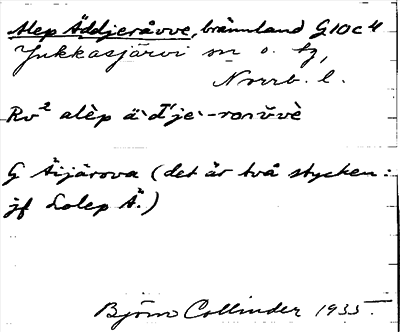 Alep Äddjeråvve, brännland G10c4
Jukkasjärvi sn o. tg,
Norrb. l.
Rv² alèp ä·d'je·-ronŭvè
G Äijärova (det är två stycken:
jf Lolep Ä.)
Björn Collinder 1935.